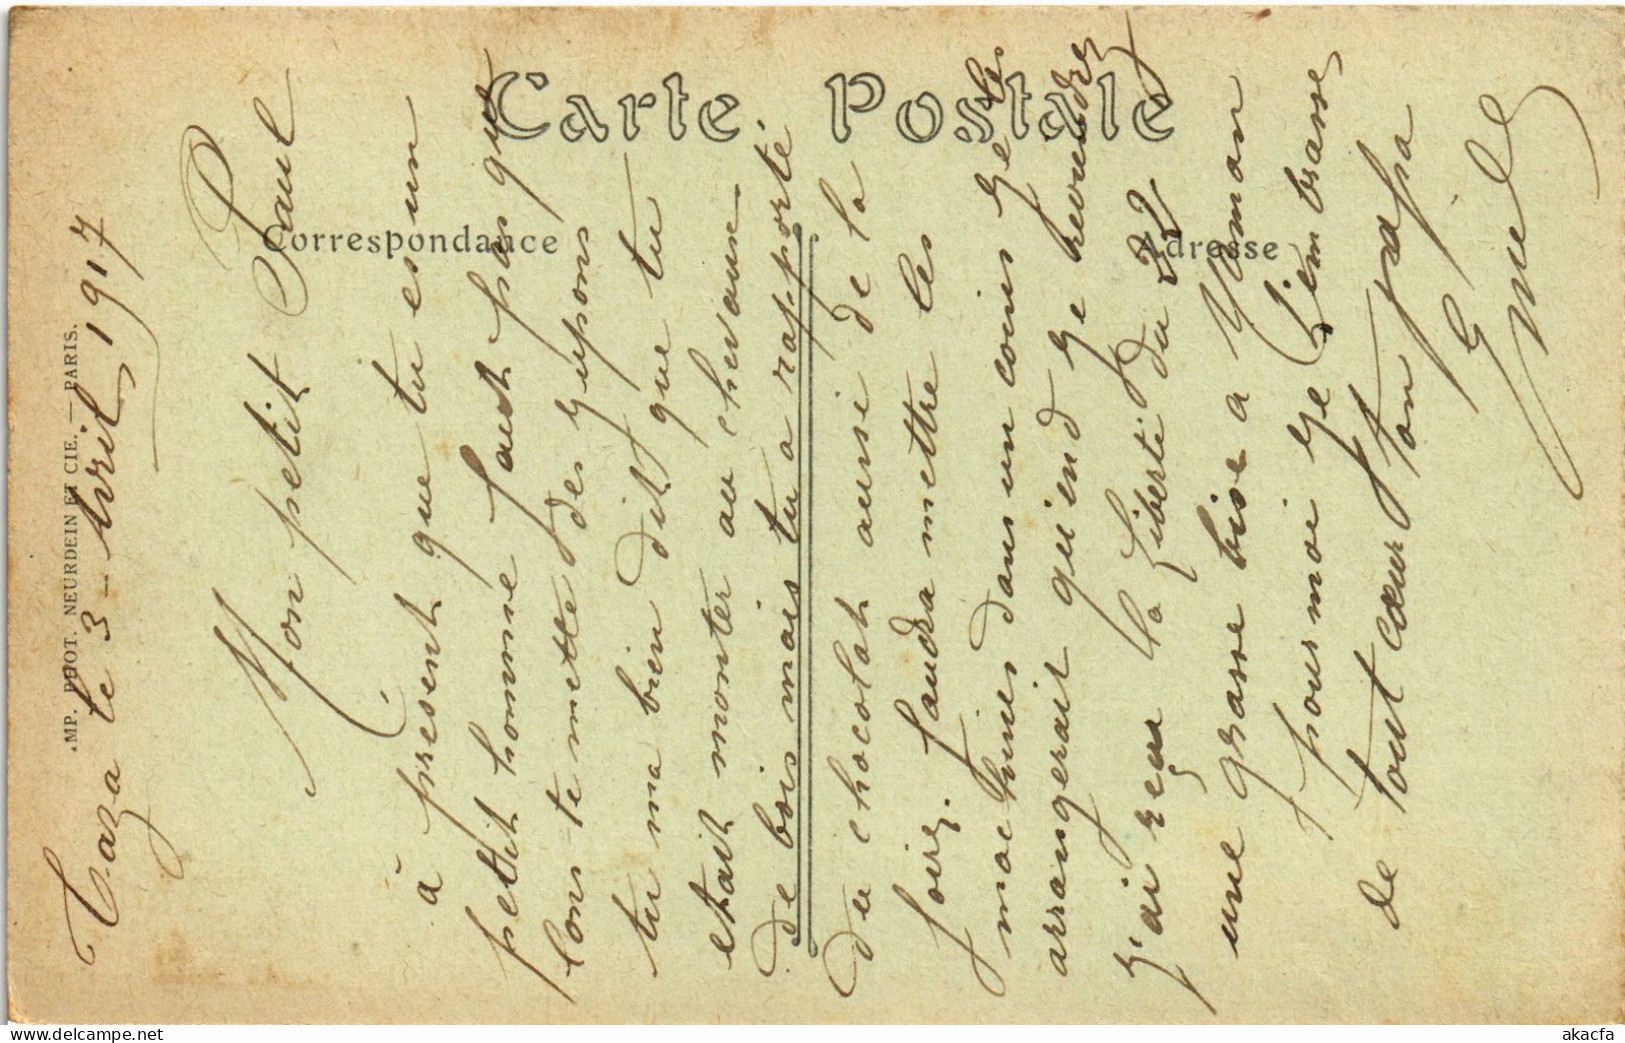 Carte Postale
Correspondance
Adresse
IMP. PHOT. NEURDEIN ET CIE. — PARIS.
Taza le 3 – Avril 1917
Mon petit Paul
à présent que tu es un
petit homme faut pas que
l'ons te mette des jupons
tu ma bien dit que tu
etait monter au chevaux
de bois mais tu a rapporté
du chocolat aussi de la
foire. faudra mettre les
machines dans un coins je les
arrangerait qu'end je reviendrez
j'ai reçu la liberté du 22
une grasse bise a Maman
pour moi je t'embrasse
de tout cœur ton papa
akacfa
www.delcampe.net